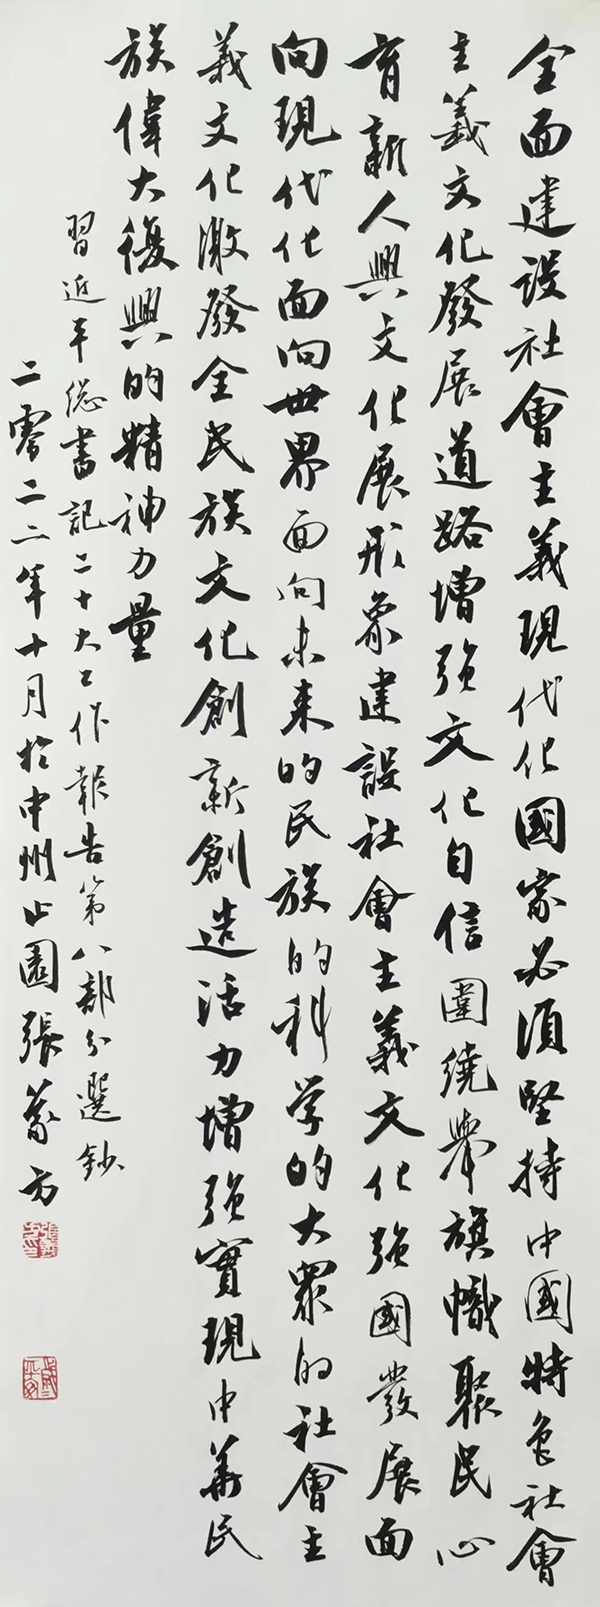 全面建设社會主義現代化國家必須堅持中國特色社會
主義文化發展道路增强文化自信圍繞舉旗幟聚民心
育新人興文化展形象建設社會主義文化强國發展面
向現代化面向世界面向未来的民族的科学的大眾的社會主
義文化激發全民族文化創新創造活力增强實現中華民
族偉大復興的精神力量
習近平總書記二十大工作報告第八部分選鈔
二零二二年十月於中州止園張篆方